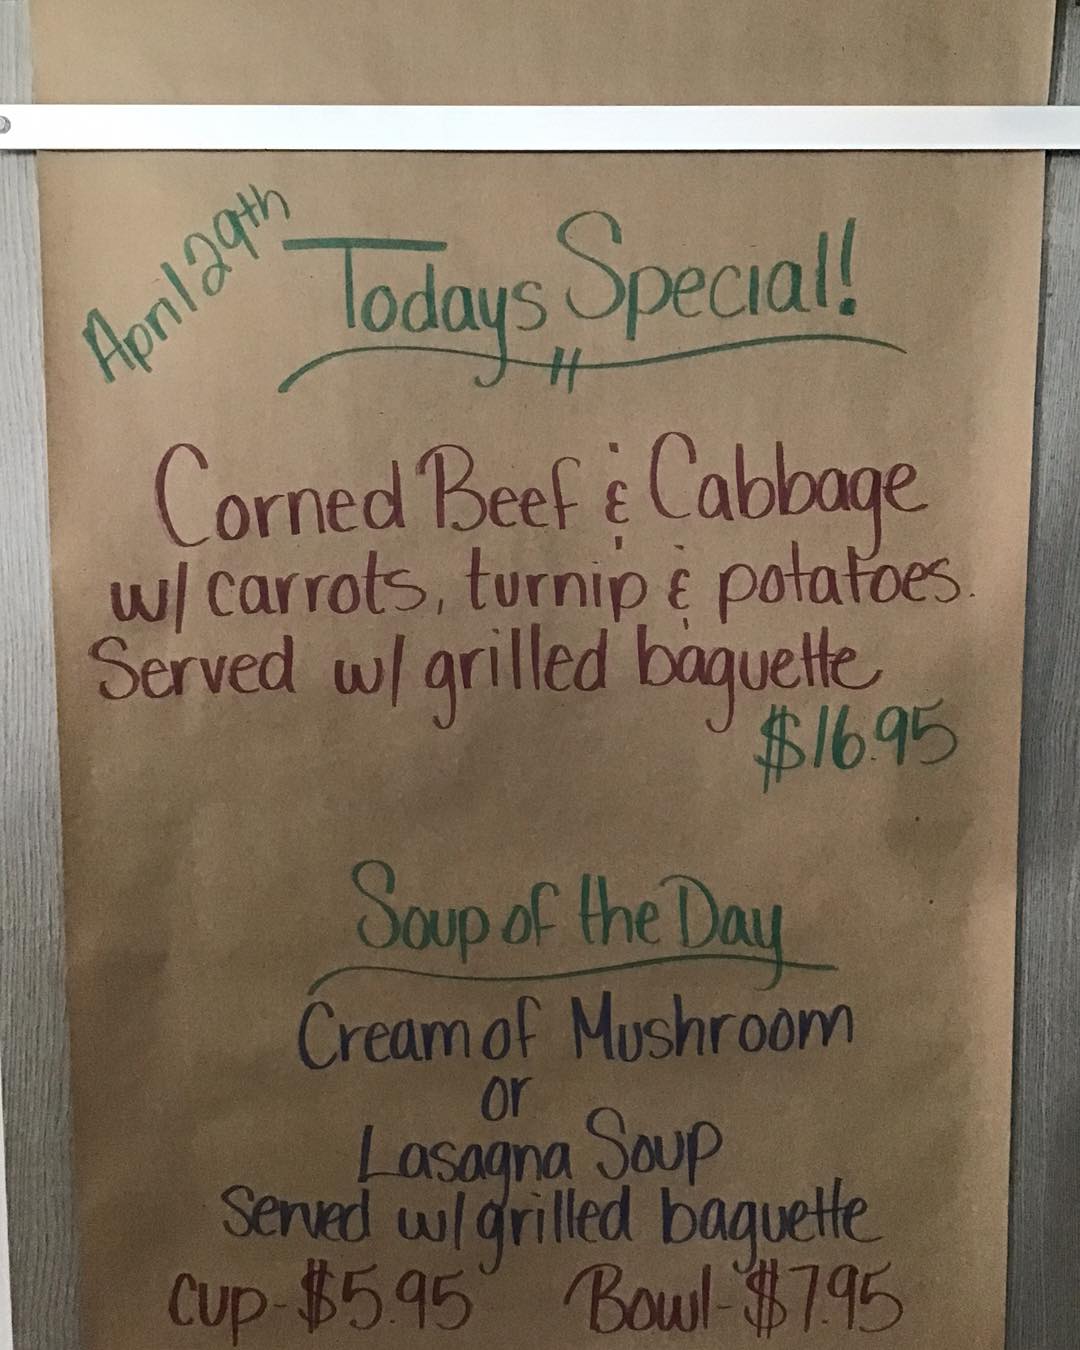 April 29th
Todays Special!
Corned Beef & Cabbage
w/ carrots, turnip & potatoes.
Served w/ grilled baguette
$16.95
Soup of the Day
Cream of Mushroom
or
Lasagna Soup
Served w/ grilled baguette
cup-$5.95 Bowl-$7.95